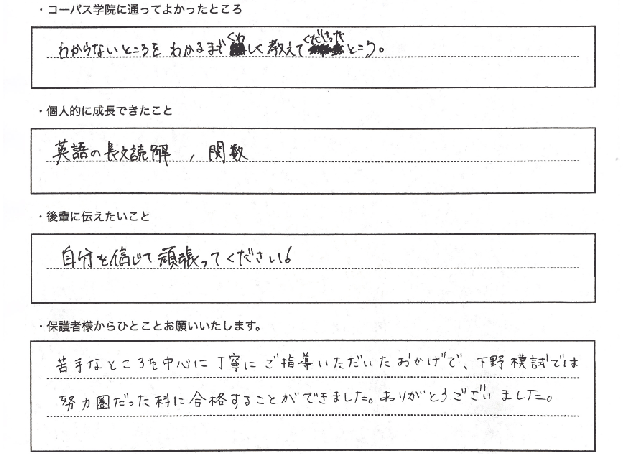 ・コーパス学院に通ってよかったところ
わからないところを わかるまで くわしく教えて くださったところ。
・個人的に成長できたこと
英語の長文読解 , 関数
・後輩に伝えたいこと
自分を信じて頑張ってください!
・保護者様からひとことお願いいたします。
苦手なところを中心に丁寧にご指導いただいたおかげで、下野模試では
努力圏だった科に合格することができました。ありがとうございました。